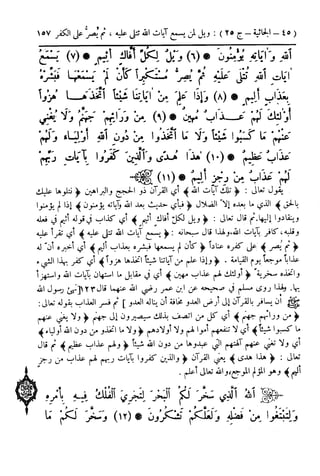 (٤٥ - الجاثية - ج ٢٥) : ويل لمن يسمع آيات الله تتلى عليه ، ثم يُصرُّ على الكفر ١٥٧
ٱللَّهِ وَءَايَٰتِهِۦ يُؤْمِنُونَ * (٦) وَيْلٌ لِّكُلِّ أَفَّاكٍ أَثِيمٍ * (٧) يَسْمَعُ
ءَايَٰتِ ٱللَّهِ تُتْلَىٰ عَلَيْهِ ثُمَّ يُصِرُّ مُسْتَكْبِرًا كَأَن لَّمْ يَسْمَعْهَا فَبَشِّرْهُ
بِعَذَابٍ أَلِيمٍ * (٨) وَإِذَا عَلِمَ مِنْ ءَايَٰتِنَا شَيْـًٔا ٱتَّخَذَهَا هُزُوًا
أُو۟لَٰٓئِكَ لَهُمْ عَذَابٌ مُّهِينٌ * (٩) مِّن وَرَآئِهِمْ جَهَنَّمُ وَلَا يُغْنِى
عَنْهُم مَّا كَسَبُوا۟ شَيْـًٔا وَلَا مَا ٱتَّخَذُوا۟ مِن دُونِ ٱللَّهِ أَوْلِيَآءَ وَلَهُمْ
عَذَابٌ عَظِيمٌ * (١٠) هَٰذَا هُدًى وَٱلَّذِينَ كَفَرُوا۟ بِـَٔايَٰتِ رَبِّهِمْ
لَهُمْ عَذَابٌ مِّن رِّجْزٍ أَلِيمٌ * (١١)
يقول تعالى : ﴿ تلك آيات الله ﴾ أي القرآن ذو الحجج والبراهين ﴿ نتلوها عليك
بالحق ﴾ الذي ما بعده إلا الضلال ﴿ فبأي حديث بعد الله وآياته يؤمنون ﴾ إذا لم يؤمنوا
وينقادوا إليها. ثم قال تعالى : ﴿ ويل لكل أفاك أثيم ﴾ أي كذاب في قوله أثيم في فعله
وقلبه، كافر بآيات الله. ولهذا قال سبحانه : ﴿ يسمع آيات الله تتلى عليه ﴾ أي تقرأ عليه
﴿ ثم يصر ﴾ على كفره عناداً ﴿ كأن لم يسمعها فبشره بعذاب أليم ﴾ أي أخبره أن له
عذاباً موجعاً يوم القيامة . ﴿ وإذا علم من آياتنا شيئاً اتخذها هزواً ﴾ أي كفر بهذا الشيء
واتخذه سخرية ﴿ أولئك لهم عذاب مهين ﴾ أي في مقابل ما استهان بآيات الله واستهزأ
بها. ولهذا روى مسلم في صحيحه عن ابن عمر رضي الله عنهما قال ٢٣ [ نهى رسول الله
أن يسافر بالقرآن إلى أرض العدو مخافة أن يناله العدو ] ثم فسر العذاب بقوله تعالى :
﴿ من ورائهم جهنم ﴾ أي كل من اتصف بذلك سيصيرون إلى جهنم ﴿ ولا يغني عنهم
ما كسبوا شيئاً ﴾ أي لا تنفعهم أموالهم ولا أولادهم ﴿ ولا ما اتخذوا من دون الله أولياء ﴾
أي ولا تغني عنهم آلهتهم التي عبدوها من دون الله شيئاً ﴿ ولهم عذاب عظيم ﴾ ثم قال
تعالى : ﴿ هذا هدى ﴾ يعني القرآن ﴿ والذين كفروا بآيات ربهم لهم عذاب من رجز
أليم ﴾ وهو المؤلم الموجع، والله تعالى أعلم .
ٱللَّهُ ٱلَّذِى سَخَّرَ لَكُمُ ٱلْبَحْرَ لِتَجْرِىَ ٱلْفُلْكُ فِيهِ بِأَمْرِهِۦ
وَلِتَبْتَغُوا۟ مِن فَضْلِهِۦ وَلَعَلَّكُمْ تَشْكُرُونَ * (١٢) وَسَخَّرَ لَكُم مَّا